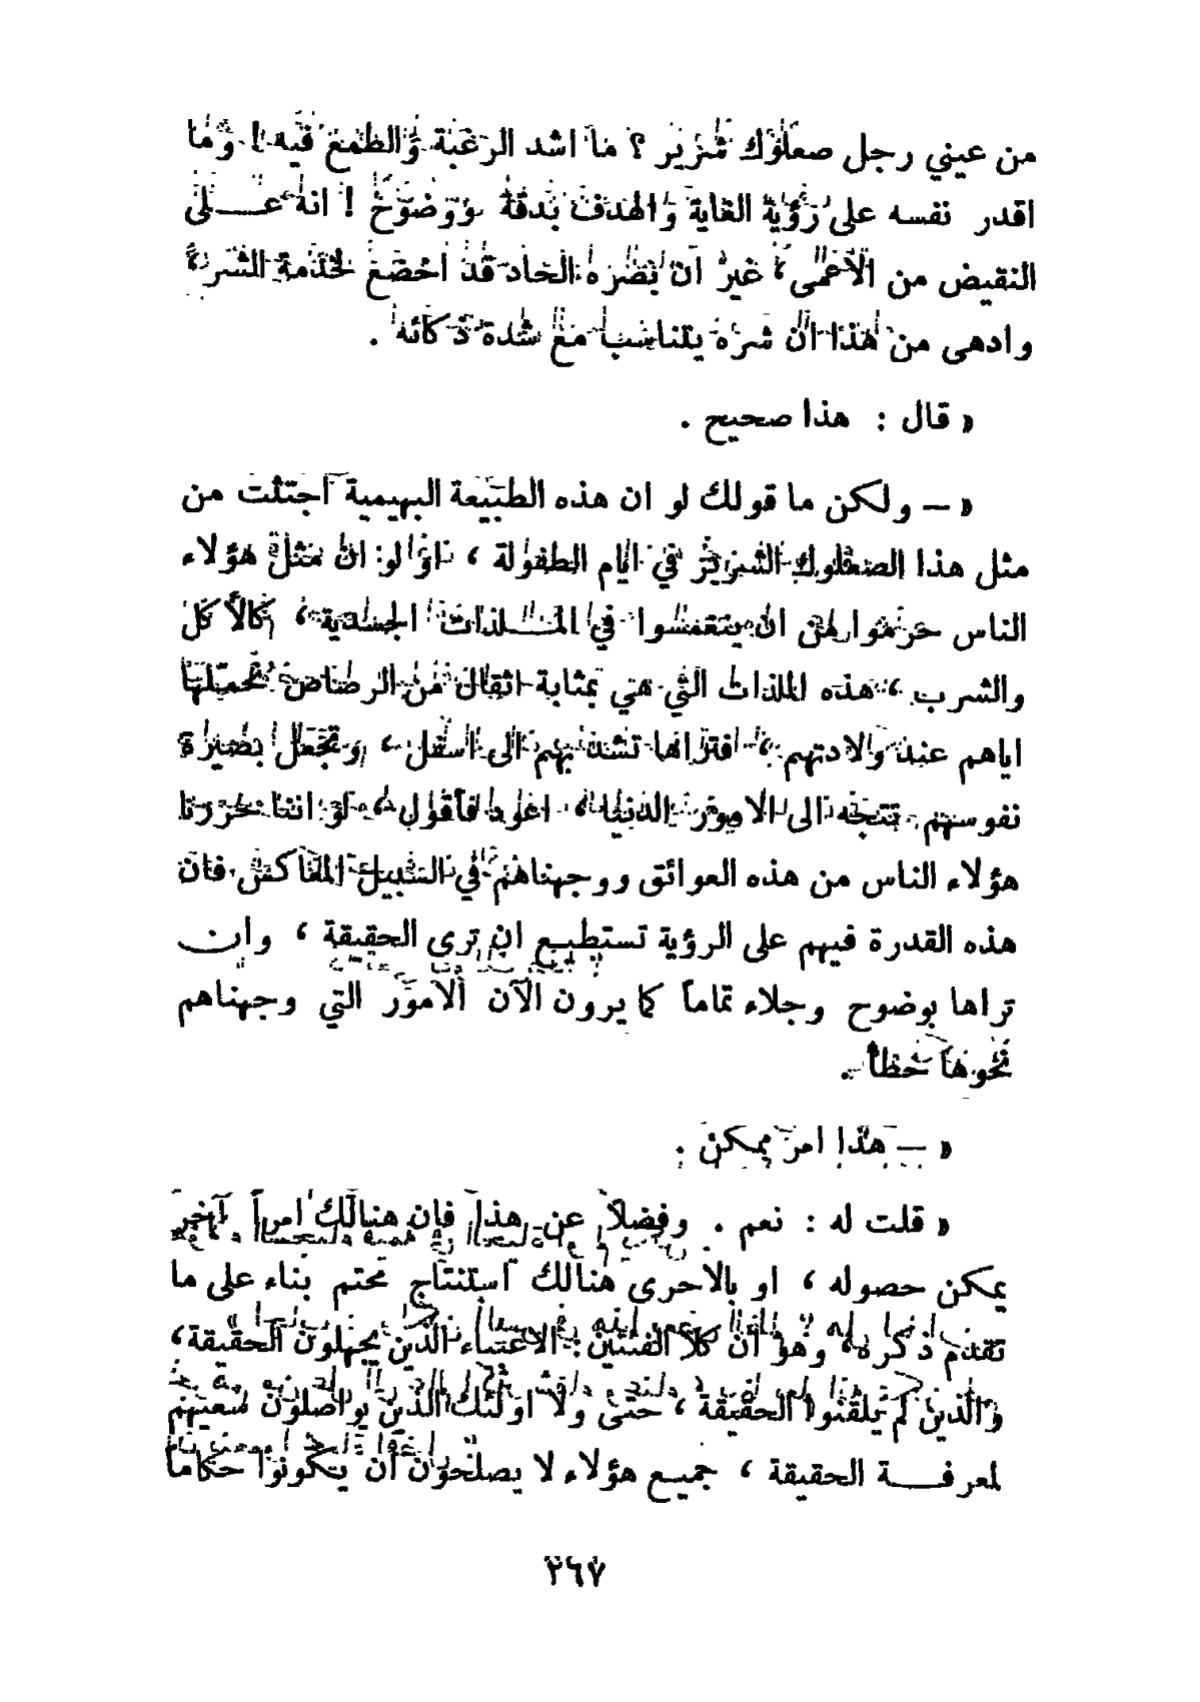 من عيني رجل صعلوك شرير ؟ ما اشد الرغبة والطمع فيه ! وما
اقدر نفسه على رؤية الغاية والهدف بدقة ووضوح ! انه عـــلى
النقيض من الأعمى ، غير ان بصره الحاد قد اخضع لخدمة الشر ،
وادهى من هذا ان شره يتناسب مع شدة ذكائه .
« قال : هذا صحيح .
« — ولكن ما قولك لو ان هذه الطبيعة البهيمية اجتثت من
مثل هذا الصعلوك الشرير في ايام الطفولة ، او لو ان مثل هؤلاء
الناس حرموا من ان ينغمسوا في المـــلذات الجسدية ، كالأكل
والشرب ، هذه الملذات التي هي بمثابة اثقال من الرصاص تحمّلها
اياهم عند ولادتهم ، فتراها تشد بهم الى اسفل ، وتجعل بصيرة
نفوسهم تتجه الى الامور الدنيا ، اعود فأقول ، لو اننا حررنا
هؤلاء الناس من هذه العوائق ووجهناهم في السبيل المعاكس فان
هذه القدرة فيهم على الرؤية تستطيع ان ترى الحقيقة ، وان
تراها بوضوح وجلاء تماماً كما يرون الآن الامور التي وجهناهم
نحوها خطأ .
« — هذا امر ممكن .
« قلت له : نعم . وفضلاً عن هذا فان هنالك امراً آخر
يمكن حصوله ، او بالاحرى هنالك استنتاج محتم بناء على ما
تقدم ذكره ، وهو ان كلا الفئتين : الاغبياء الذين يجهلون الحقيقة ،
والذين لم يلقنوا الحقيقة ، حتى ولا اولئك الذين يواصلون سعيهم
لمعرفـــة الحقيقة ، جميع هؤلاء لا يصلحون ان يكونوا حكاماً
٢٦٧